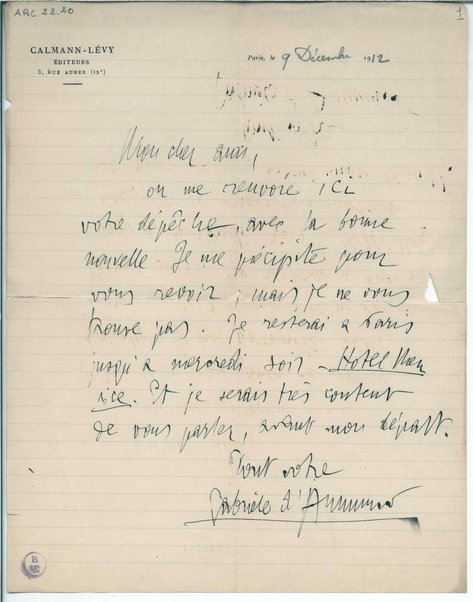 ARC.22.20
1
CALMANN-LÉVY
ÉDITEURS
3, RUE AUBER (IXe)
Paris, le 9 Décembre 1912
Mon cher ami,
on me renvoie ici
votre dépêche, avec la bonne
nouvelle. Je me précipite pour
vous revoir ; mais je ne vous
trouve pas. Je resterai a Paris
jusqu'a mercredi soir – Hotel Meu
rice. Et je serais très content
de vous parler, avant mon départ.
Tout votre
Gabriele d'Annunzio